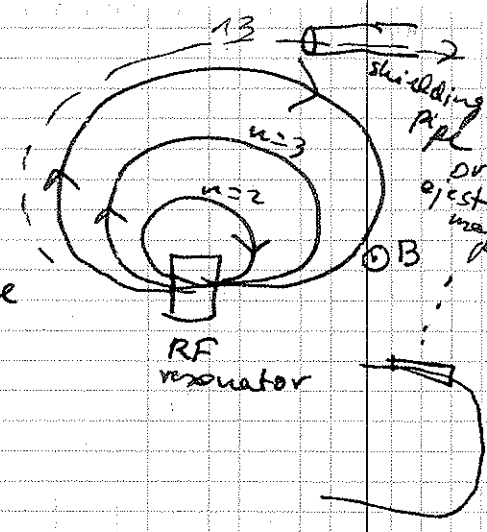 13
shielding
pipe
or
eject
n=3
n=2
B
e
RF
resonator